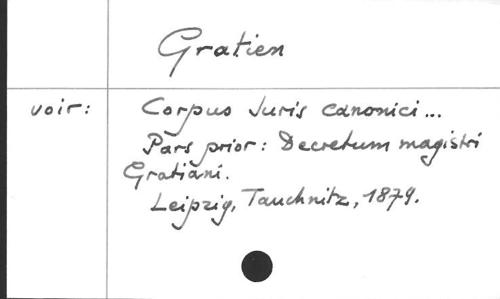 Gratien
voir: Corpus Juris canonici...
Pars prior: Decretum magistri
Gratiani.
Leipzig, Tauchnitz, 1879.